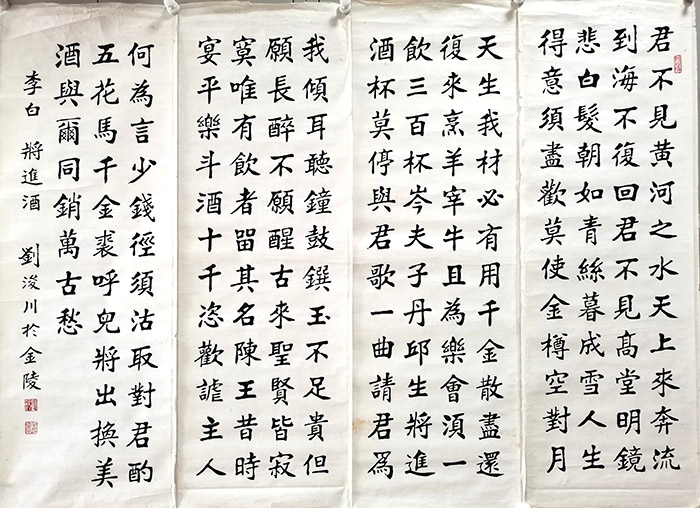 君不見黃河之水天上來奔流
到海不復回君不見髙堂明鏡
悲白髮朝如青絲暮成雪人生
得意須盡歡莫使金樽空對月
天生我材必有用千金散盡還
復來烹羊宰牛且為樂會湏一
飲三百杯岑夫子丹邱生將進
酒杯莫停與君歌一曲請君爲
我傾耳聽鐘鼓鐉玉不足貴但
願長醉不願醒古來聖賢皆寂
寞唯有飲者留其名陳王昔時
宴平樂斗酒十千恣歡謔主人
何為言少錢徑須沽取對君酌
五花馬千金裘呼兒將出換美
酒與爾同銷萬古愁
李白 將進酒 劉浚川於金陵